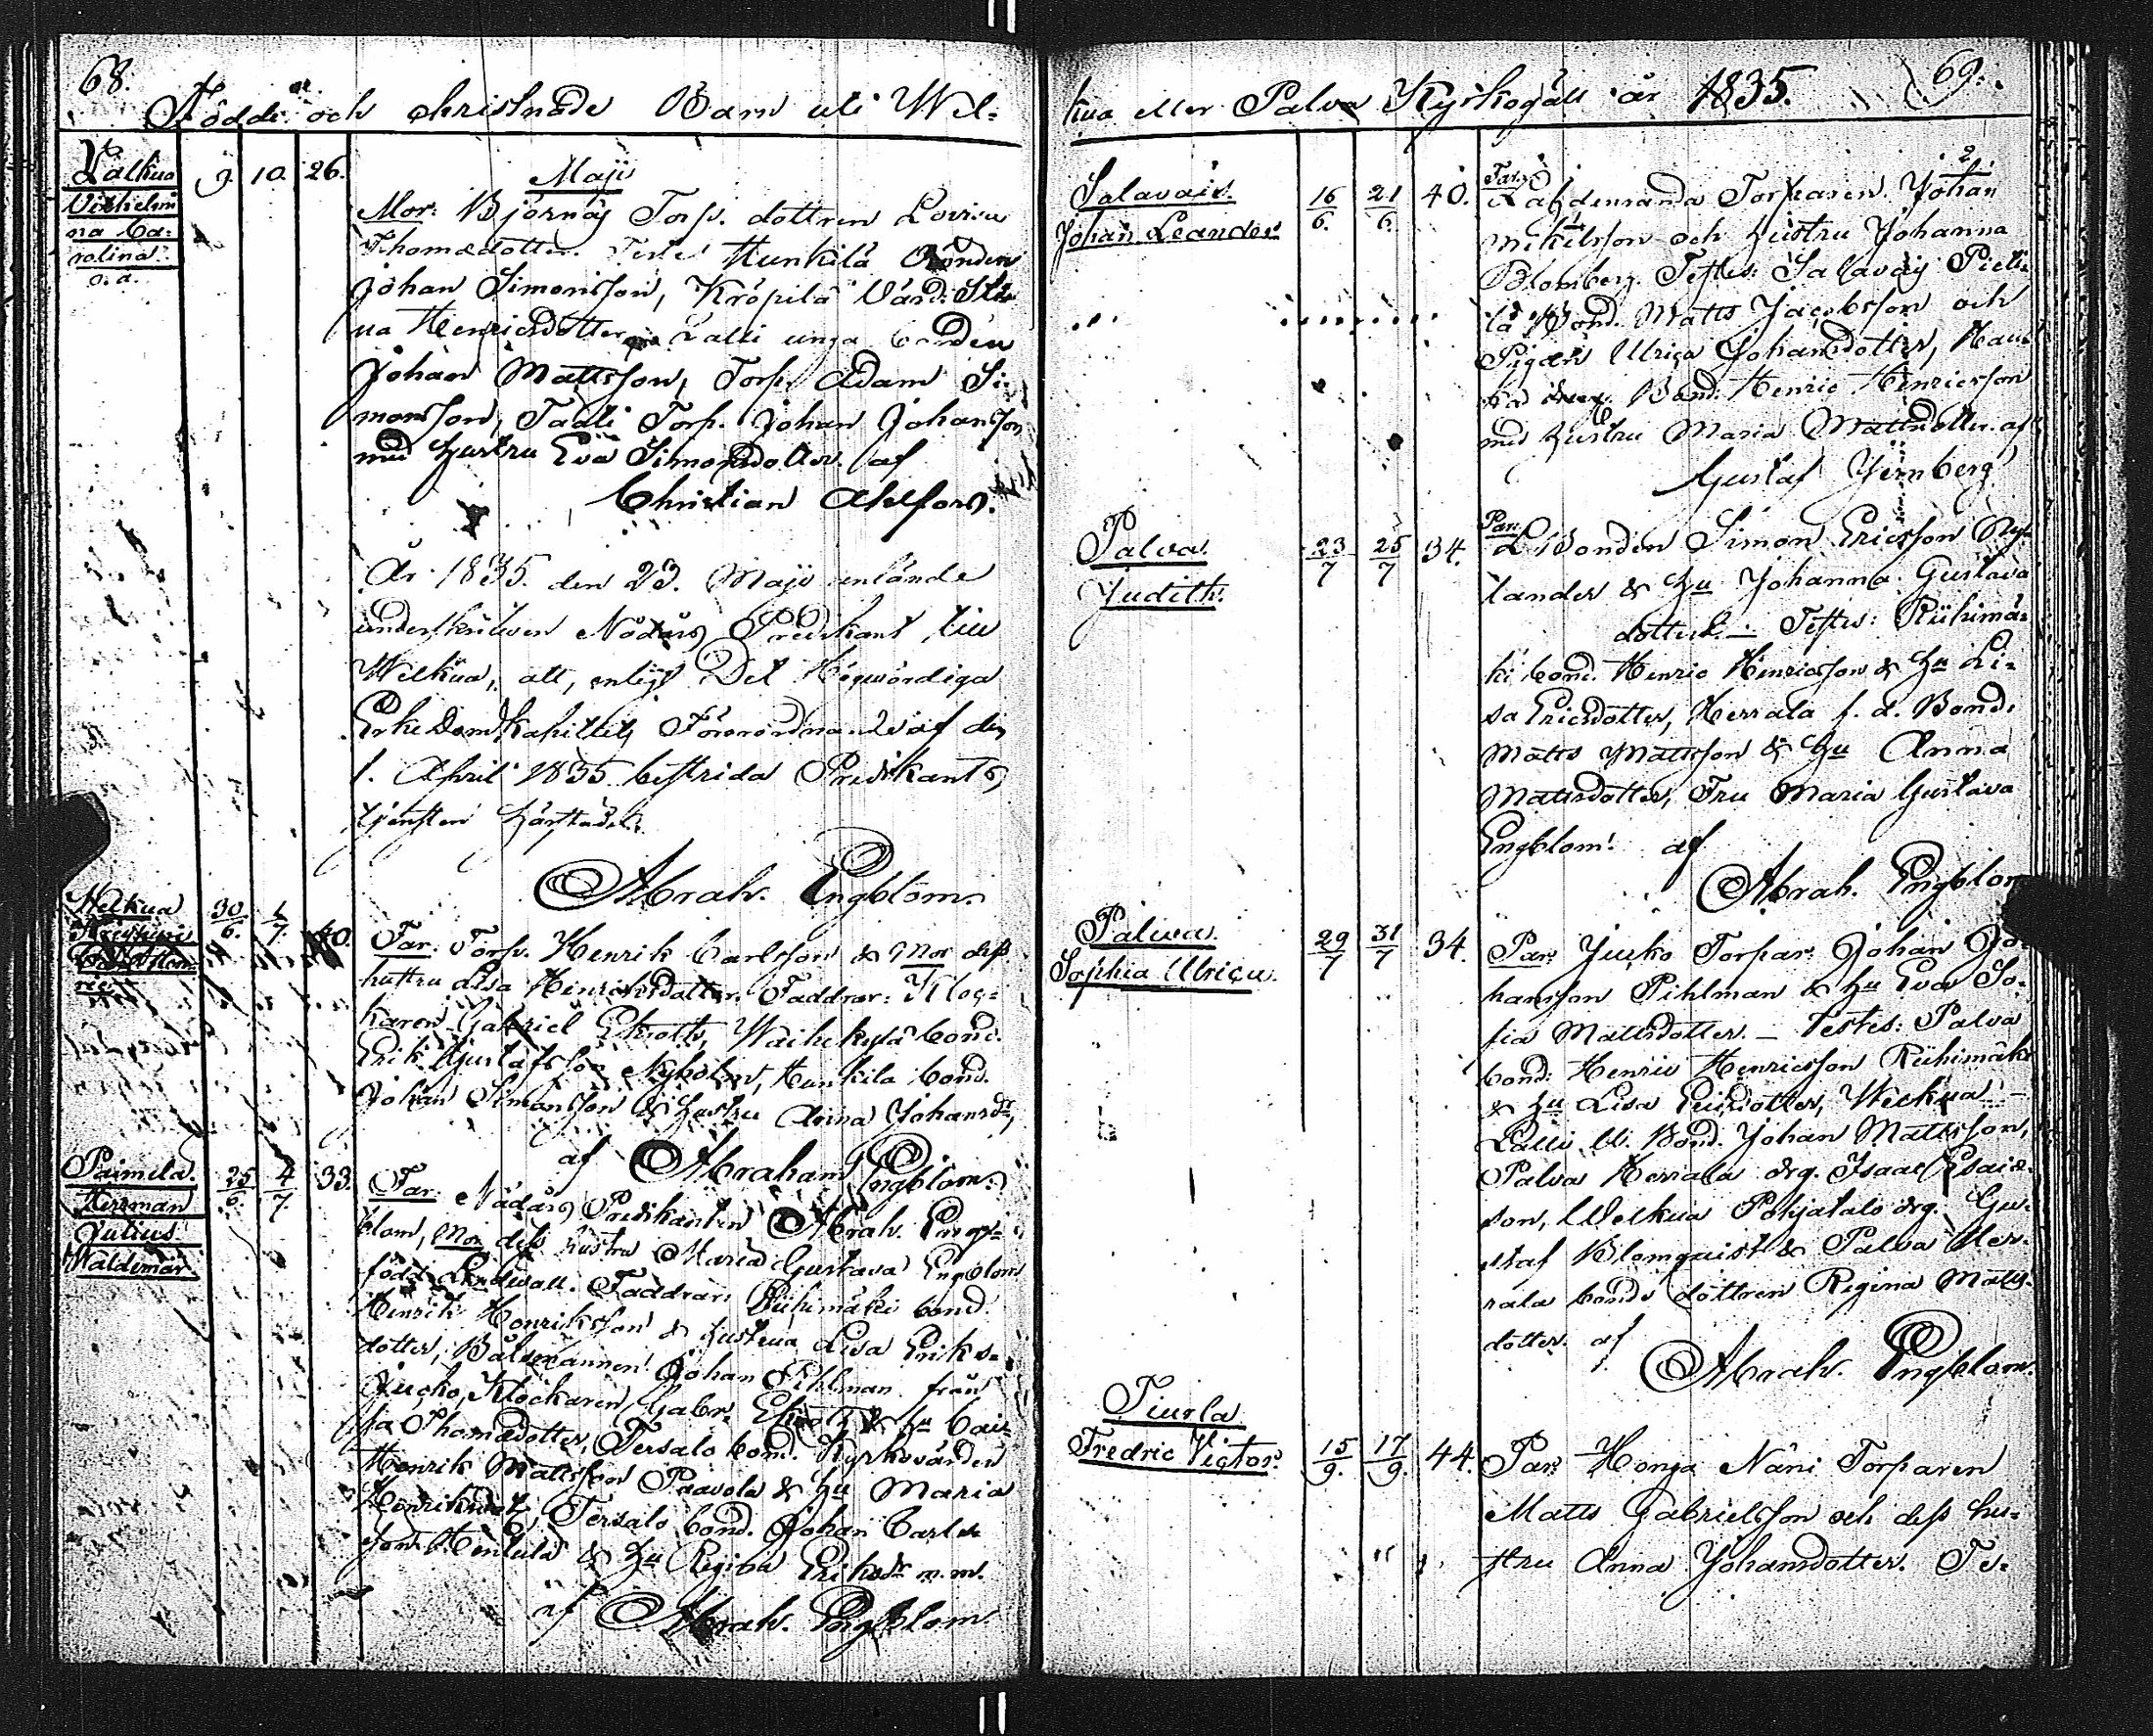 68.
Födde och christnade Barn uti Wel-
Välkua 9. 10. 26.
Vilhelmi
na Ca-
rolina
o. ä.
Maji
Mor: Björnäs Torp. dottren Lovisa
Thomædotter. Teste Hunkila Bonden
Johan Simonsson, Kröpilä Värd.
na Henricsdotter Lalli unga Bonden
Johan Mattsson, Torp. Adam Si-
monsson, Tadli Torp. Johan Johansson
med hustru Eva Simonsdotter. af
Christian Ahlfors.
År 1835. den 23. Maji anlände
underskrifwen Nådårs Predikant till
Welkua, att, enligt Det Högwördiga
Erke Domkapitlets Förordnande af den
1. April 1835 bestrida Predikants
tjensten härstädes.
Abrah. Engblom.
Welkua 30/6. 1/7. 40.
Far: Torp. Henrik Carlsson & Mor dess
hustru Lisa Henriksdotter. Faddrar: Kloc-
karen Gabriel Ekroth, Waihekylä bond.
Erik Gustafsson Nyholm, Hunkila bond.
Johan Simonsson & hustru Anna Johansdr,
af Abraham Engblom.
Paimela. 25/6. 4/7. 33.
Herman
Julius
Waldemar.
Far: Nådårs Predikanten Abrah. Eng-
blom, Mor dess hustru Maria Gustava Engblom
född Lindwall. Faddrar: Riihimäki bond.
Henrik Henriksson & hustrua Lisa Eriks-
dotter, Båtsmannen Johan Pihlman från
Jucko, Klockaren Gabr. & hu Cai-
sa Thomædotter, Tersalo bond. Kyrkovärden
Henrik Mattsson Paavola & hu Maria
Henriksdotr, Tersalo bond. Johan Carls-
son Hentula & hu Regina Eriksdr m.m.
af Abrah. Engblom
69.
kua eller Palva Kyrkogäll år 1835.
Salavais. 16/6. 21/6. 40.
Johan Leander
Par: Torparen Johan
Mikelsson och hustru Johanna
Blomberg. Testes: Salavais Pieti-
lä Bond. Matts Jacobsson och
Pigan Ulrica Johansdotter, Hau-
ka Bond. Henric Henricsson
med hustru Maria Mattsdotter. af
Gustaf Jernberg
Palva. 23/7 25/7 34.
Judith.
Par: Bonden Simon Ericsson Ny-
lander & hu Johanna Gustava
dotter. – Testes: Riihimä-
ki bond. Henric Henricsson & hu Li-
sa Ericsdotter, Herrala f. d. Bond.
Matts Mattsson & hu Anna
Mattsdotter, Fru Maria Gustava
Engblom. af
Abrah. Engblom
Palwa. 29/7 31/7 34.
Sophia Ulrica.
Par: Jucko Torpar. Johan Jo-
hansson Pihlman & hu Eva So-
fia Mattsdotter. – Testes: Palva
bond: Henric Henricsson Riihimäki
& hu Lisa Ericsdotter, Weckua –
Lalli U. Bond. Johan Mattsson,
Palva Herrala drg. Isaac Esaia-
son, Welkua Pohjatalo drg. Gu-
staf Blomquist & Palva Her-
rala bonde dottren Regina Matts-
dotter. af
Abrah. Engblom.
Tiurla
Fredric Victor. 15/9. 17/9. 44.
Par: Honga Näni Torparen
Matts Gabrielsson och dess hu-
stru Anna Johansdotter. Te-